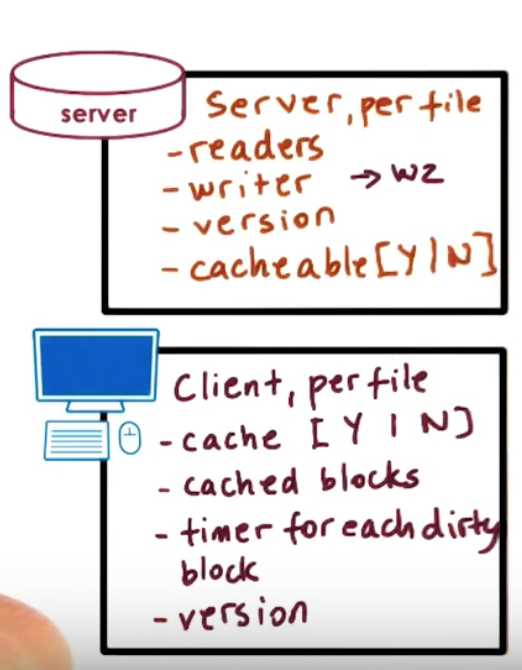 server
Server, per file
- readers
- writer → w2
- version
- cacheable [Y|N]
Client, per file
- cache [Y | N]
- cached blocks
- timer for each dirty
block
- version